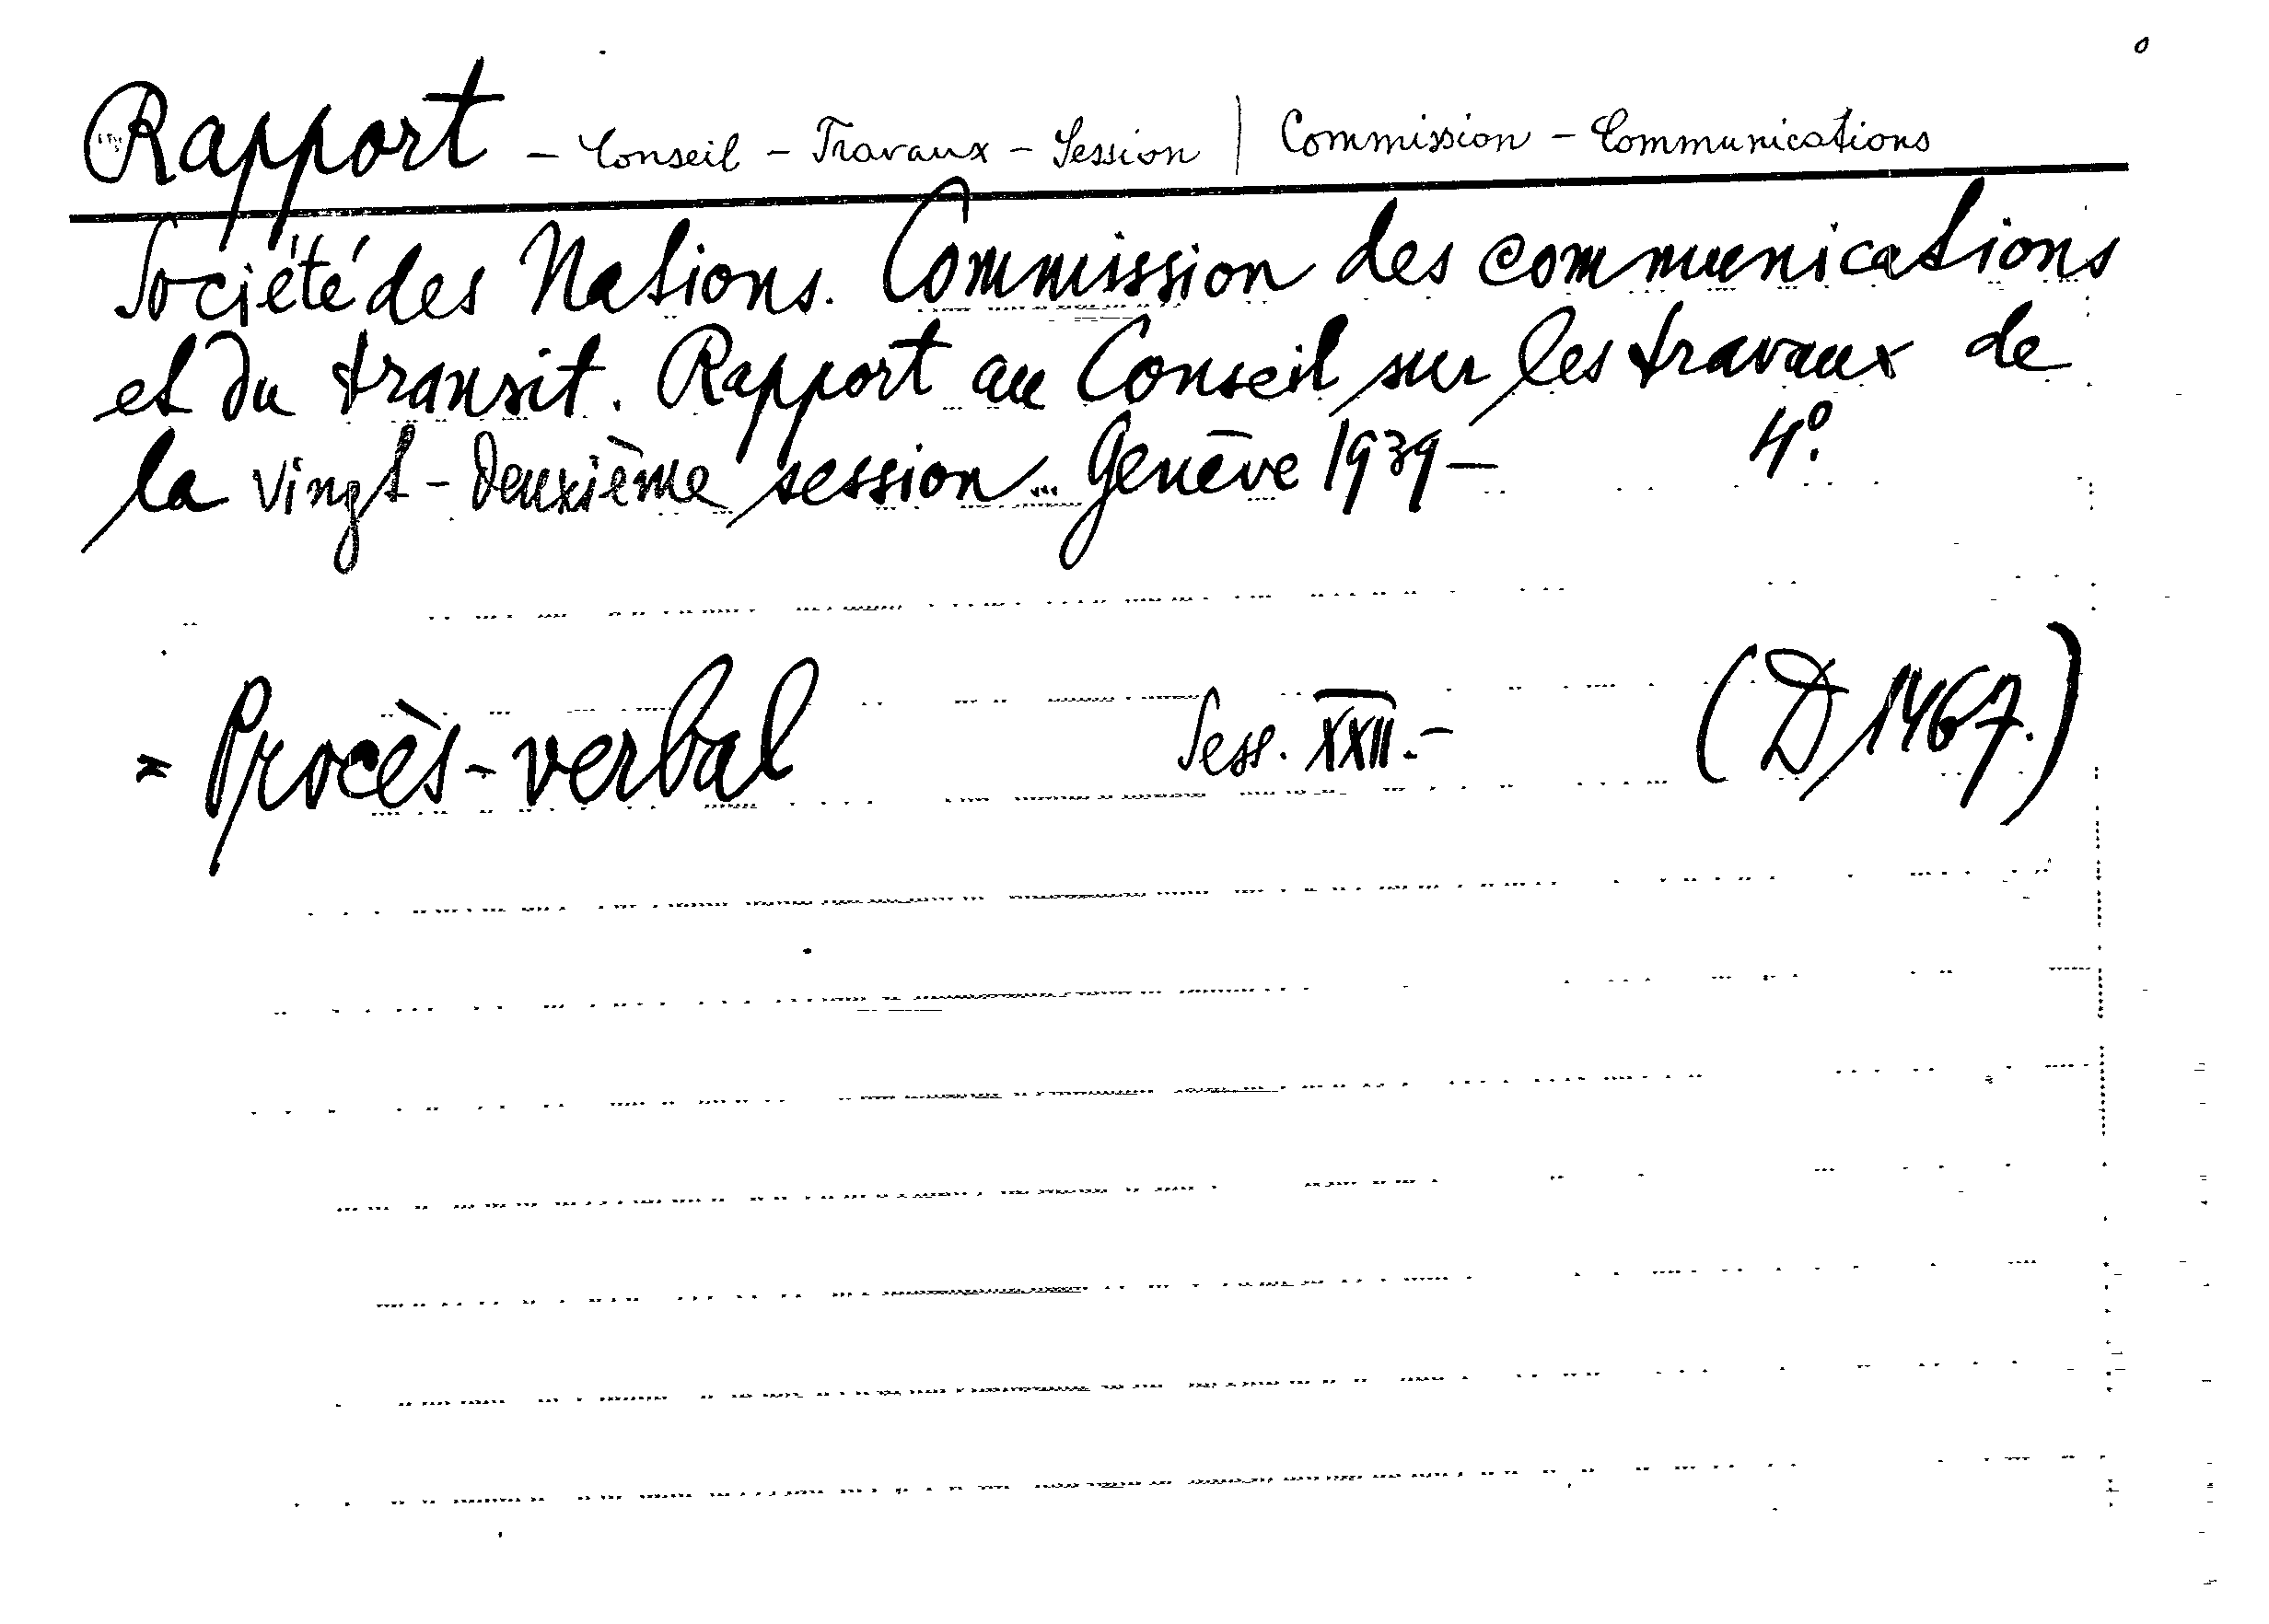 Rapport - Conseil - Travaux - Session | Commission - Communications
Société des Nations. Commission des communications
et du transit. Rapport au Conseil sur les travaux de
la vingt-deuxième session... Genève 1939 - 4º.
= Procès-verbal Sess. XXII. - (D 1467.)